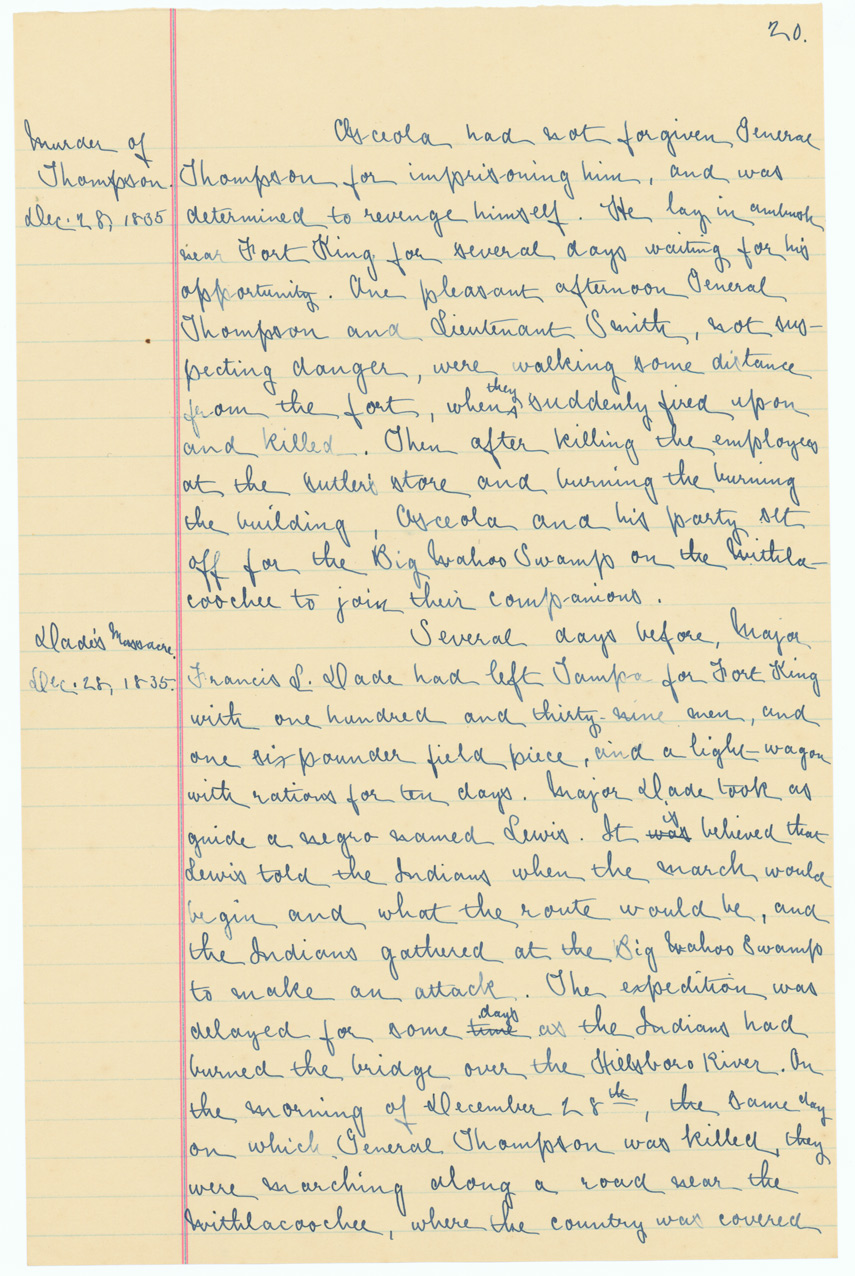 20.
Murder of
Thompson.
Dec. 28, 1835
Osceola had not forgiven General
Thompson for imprisoning him, and was
determined to revenge himself. He lay in ambush
near Fort King for several days waiting for his
opportunity. One pleasant afternoon General
Thompson and Lieutenant Smith, not sus-
pecting danger, were walking some distance
from the fort, when they suddenly fired upon
and killed. Then after killing the employees
at the sutler's store and burning the burning
the building, Osceola and his party set
off for the Big Wahoo Swamp on the Withla-
coochee to join their companions.
Dade's Massacre.
Dec. 28, 1835.
Several days before, Major
Francis L. Dade had left Tampa for Fort King
with one hundred and thirty-nine men, and
one six pounder field piece, and a light-wagon
with rations for ten days. Major Dade took as
guide a negro named Lewis. It was is believed that
Lewis told the Indians when the march would
begin and what the route would be, and
the Indians gathered at the Big Wahoo Swamp
to make an attack. The expedition was
delayed for some time days as the Indians had
burned the bridge over the Hillsboro River. On
the morning of December 28th, the same day
on which General Thompson was killed, they
were marching along a road near the
Withlacoochee, where the country was covered